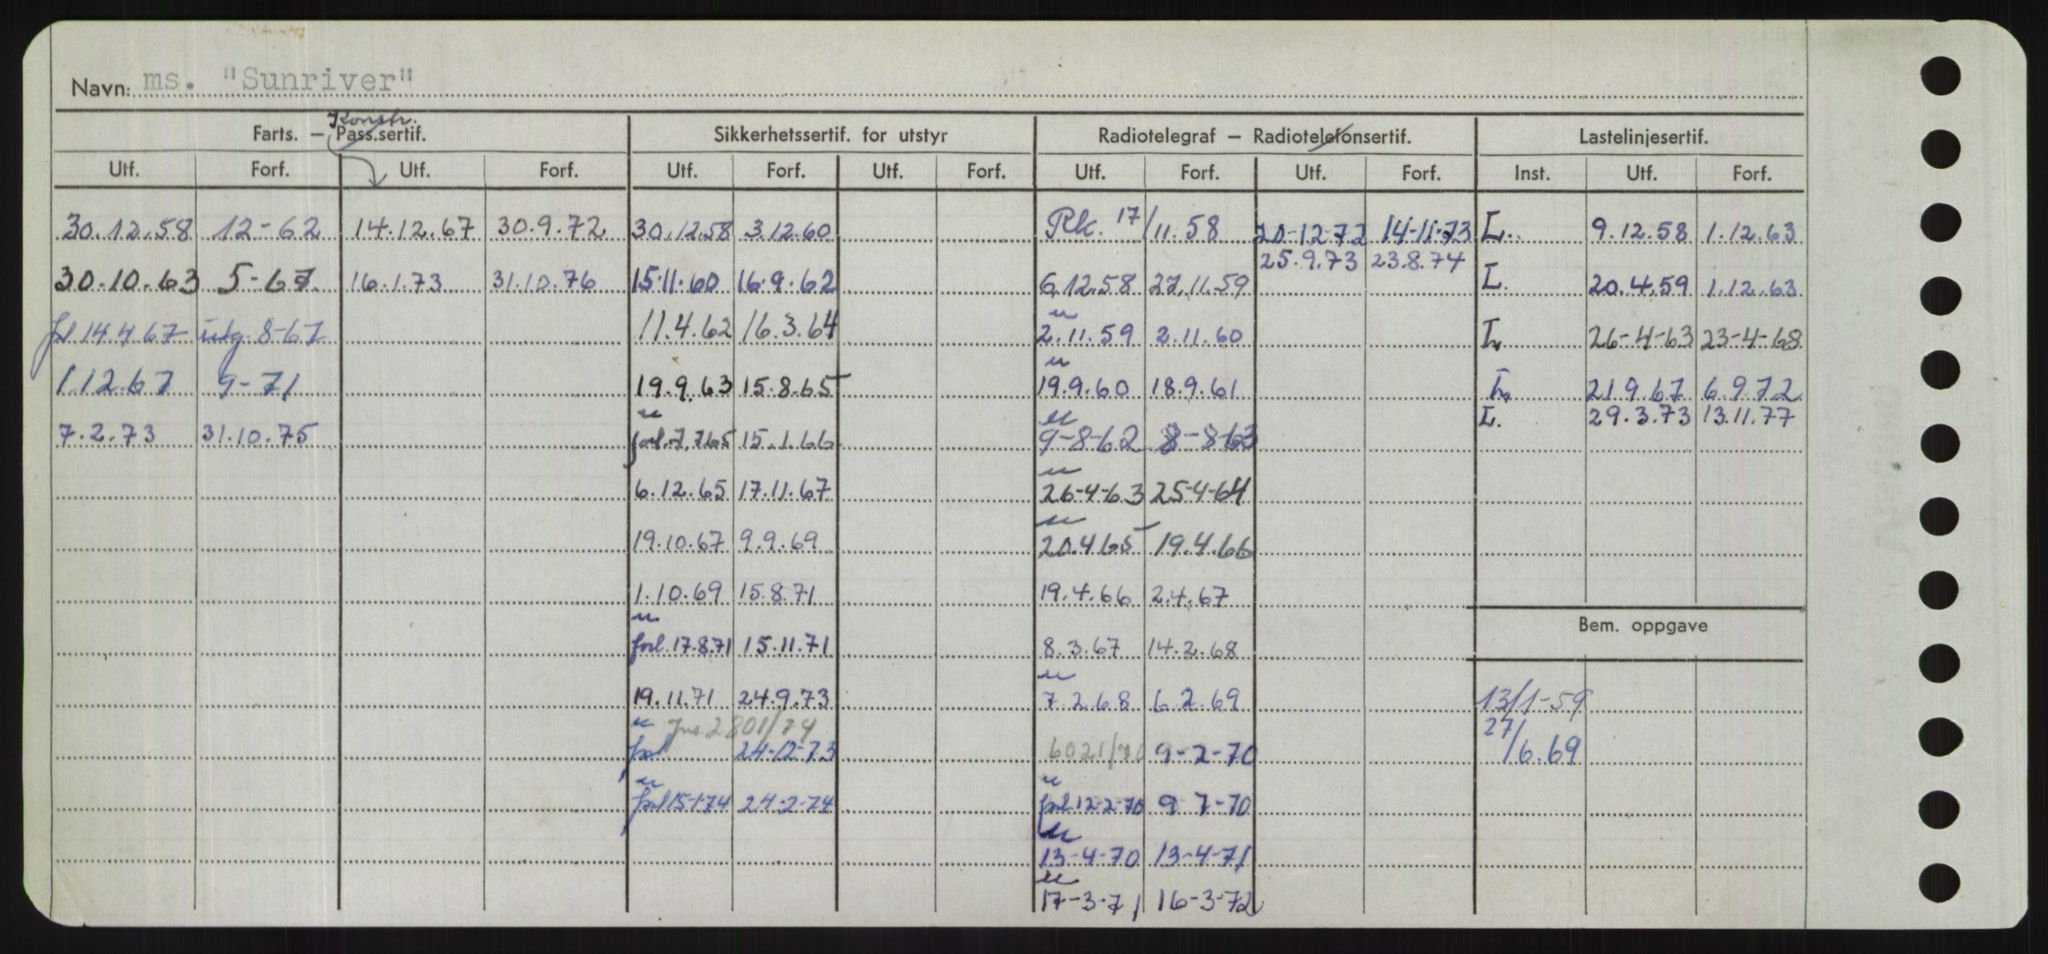 Navn: ms. "Sunriver"
Konstr.
Farts. — Pass.sertif. Sikkerhetssertif. for utstyr Radiotelegraf — Radiotelefonsertif. Lastelinjesertif.
Utf. Forf. Utf. Forf. Utf. Forf. Utf. Forf. Utf. Forf. Utf. Forf. Inst. Utf. Forf.
30.12.58 12-62 14.12.67 30.9.72 30.12.58 3.12.60 Rk. 17/11.58 20-12-72 14-11-73 L. 9.12.58 1.12.63
25.9.73 23.8.74
30.10.63 5-67 16.1.73 31.10.76 15.11.60 16.9.62 6.12.58 27.11.59 L. 20.4.59 1.12.63
fol 14.4.67 utg. 8-67 11.4.62 16.3.64 u 2.11.59 2.11.60 L. 26-4-63 23-4-68
1.12.67 9-71 19.9.63 15.8.65 u 19.9.60 18.9.61 L. 21.9.67 6.9.72
L. 29.3.73 13.11.77
7.2.73 31.10.75 u forl. 7.7.65 15.1.66 u 9-8-62 8-8-63
6.12.65 17.11.67 u 26-4-63 25-4-64
19.10.67 9.9.69 u 20.4.65 19.4.66
1.10.69 15.8.71 19.4.66 2.4.67
Bem. oppgave
u forl. 17.8.71 15.11.71 8.3.67 14.2.68
19.11.71 24.9.73 u 7.2.68 6.2.69 13/1-59
u Jns 2801/74
forl 24-12-73 6021/70 9-2-70 27/6.69
u forl 15-1-74 24-2-74 u forl. 12-2-70 9-7-70
u 13-4-70 13-4-71
u 17-3-71 16-3-72